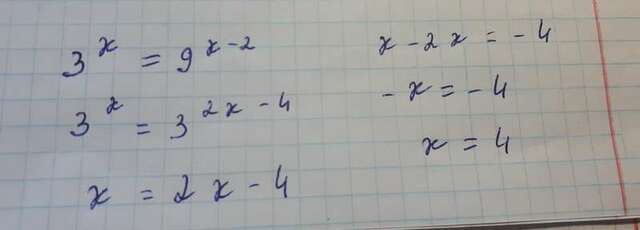 3^x = 9^{x-2}
3^x = 3^{2x-4}
x = 2x - 4
x - 2x = -4
-x = -4
x = 4